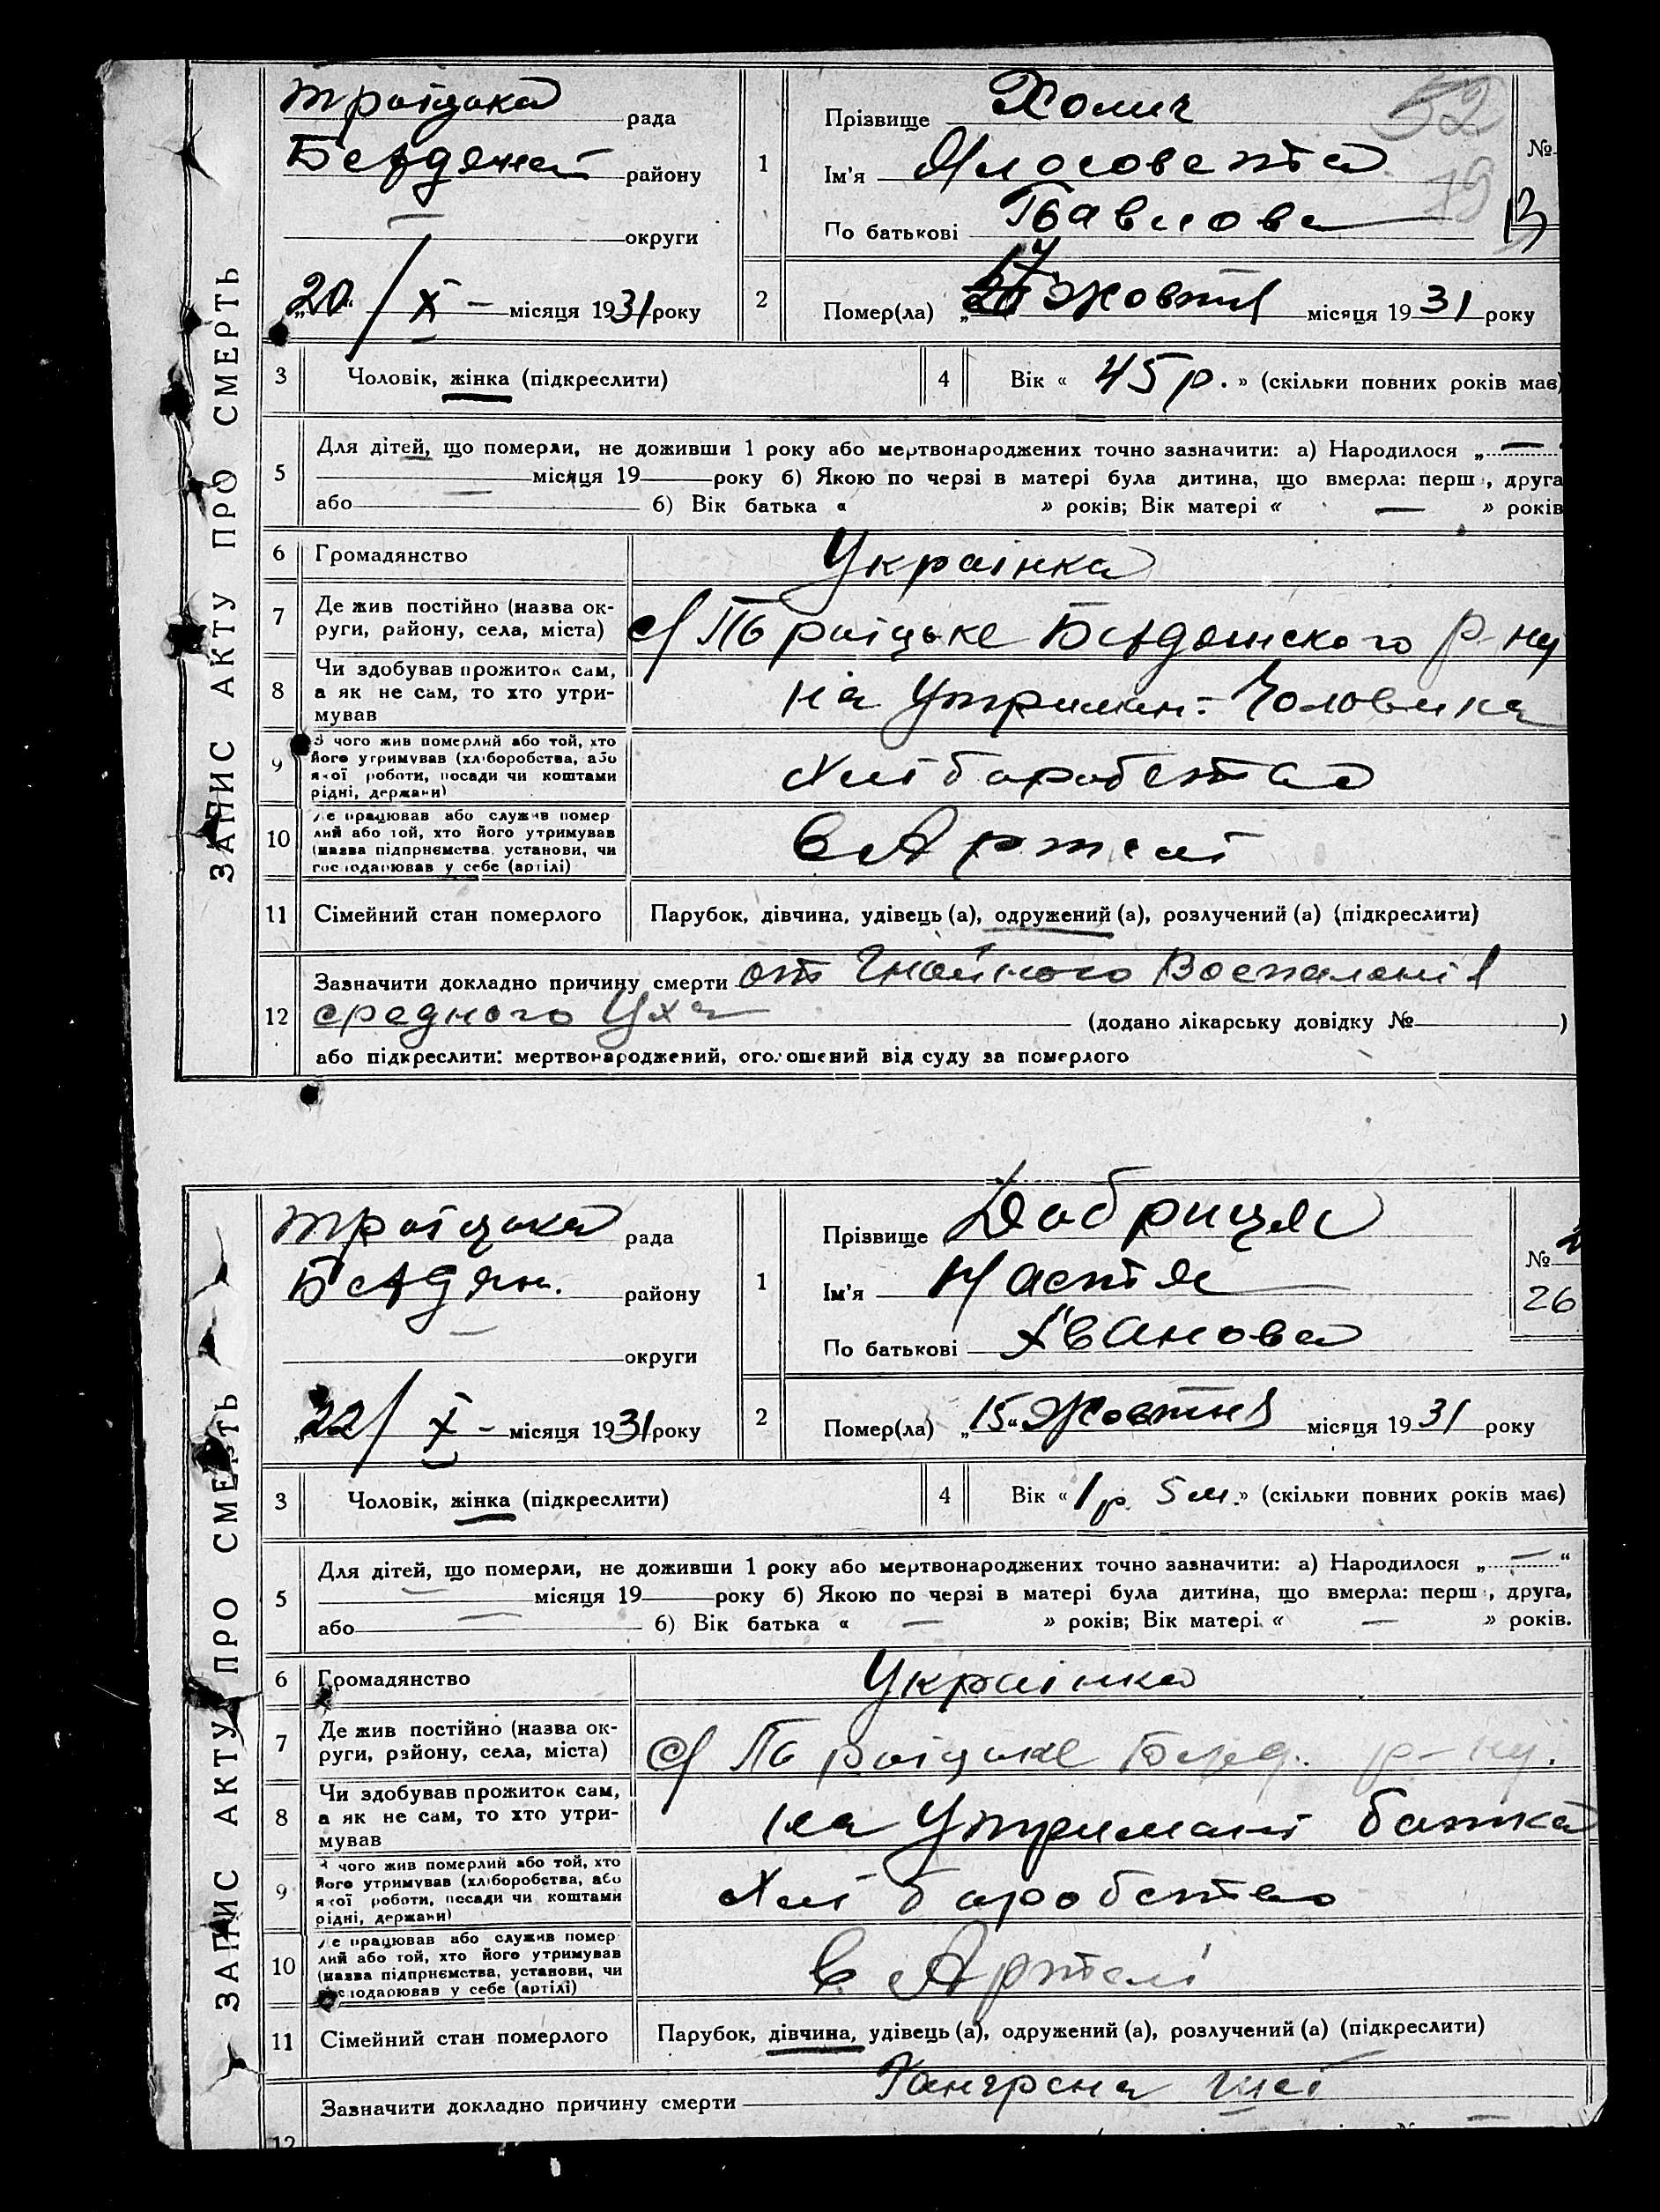 ЗАПИС АКТУ ПРО СМЕРТЬ
Троіцька рада
Бердянс району
— округи
„20“ / X – місяця 1931 року
1
Прізвище Холич
Ім'я Ялосовета
По батькові Павлова
52
19
№
13
2
Помер(ла) „17 Жовтня місяця 1931 року
3
Чоловік, жінка (підкреслити)
4
Вік « 45 р. » (скільки повних років має)
5
Для дітей, що померли, не доживши 1 року або мертвонароджених точно зазначити: а) Народилося „—“
місяця 19 року б) Якою по черзі в матері була дитина, що вмерла: перш , друга
або — б) Вік батька « » років; Вік матері « — » років
6
Громадянство
Украінка
7
Де жив постійно (назва ок-
руги, району, села, міста)
с/ Троіцьке Бердянського р-ну
8
Чи здобував прожиток сам,
а як не сам, то хто утри-
мував
на Утриман. Чоловика
9
З чого жив померлий або той, хто
його утримував (хліборобства, або
якої роботи, посади чи коштами
рідні, держави)
Хліборобства
10
Де працював або служив помер
лий або той, хто його утримував
(назва підприємства, установи, чи
господарював у себе (артілі)
в Артелі
11
Сімейний стан померлого
Парубок, дівчина, удівець (а), одружений (а), розлучений (а) (підкреслити)
12
Зазначити докладно причину смерти от Гнойного Воспаления
средного Уха (додано лікарську довідку № )
або підкреслити: мертвонароджений, оголошений від суду за померлого
ЗАПИС АКТУ ПРО СМЕРТЬ
Троіцька рада
Бердян. району
— округи
„22/ X – місяця 1931 року
1
Прізвище Добриця
Ім'я Настя
По батькові Іванова
№
26
2
Помер(ла) „15“ Жовтня місяця 1931 року
3
Чоловік, жінка (підкреслити)
4
Вік « 1 р. 5 м. » (скільки повних років має)
5
Для дітей, що померли, не доживши 1 року або мертвонароджених точно зазначити: а) Народилося „—“
— місяця 19 року б) Якою по черзі в матері була дитина, що вмерла: перш , друга,
або — б) Вік батька « — » років; Вік матері « — » років.
6
Громадянство
Украінка
7
Де жив постійно (назва ок-
руги, району, села, міста)
с/ Троіцьке Берд. р-ну.
8
Чи здобував прожиток сам,
а як не сам, то хто утри-
мував
на Утримані батька
9
З чого жив померлий або той, хто
його утримував (хліборобства, або
якої роботи, посади чи коштами
рідні, держави)
Хліборобство
10
Де працював або служив помер
лий або той, хто його утримував
(назва підприємства, установи, чи
господарював у себе (артілі)
в Артелі
11
Сімейний стан померлого
Парубок, дівчина, удівець (а), одружений (а), розлучений (а) (підкреслити)
12
Зазначити докладно причину смерти Гангрена шиї